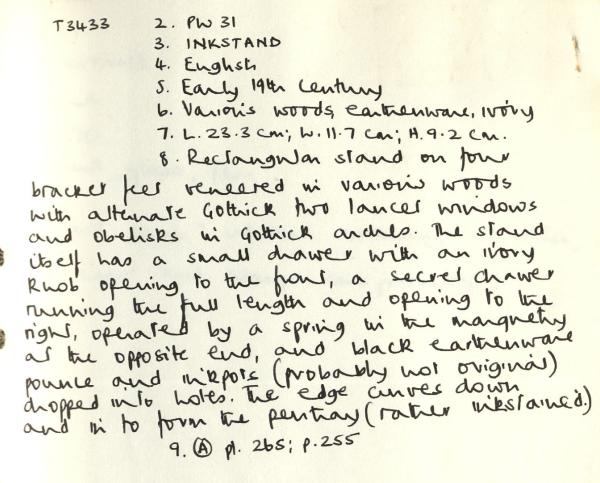 T3433 2. PW 31
3. INKSTAND
4. English
5. Early 19th Century
6. Various woods, earthenware, ivory
7. L. 23.3 cm; W. 11.7 cm; H. 9.2 cm.
8. Rectangular stand on four
bracket feet veneered in various woods
with alternate Gothick two lancet windows
and obelisks in Gothick arches. The stand
itself has a small drawer with an ivory
knob opening to the front, a secret drawer
running the full length and opening to the
right, operated by a spring in the marquetry
at the opposite end, and black earthenware
pounce and inkpots (probably not original)
dropped into holes. The edge curves down
and in to form the pentray (rather inkstained.)
9. Ⓐ pl. 265; p. 255